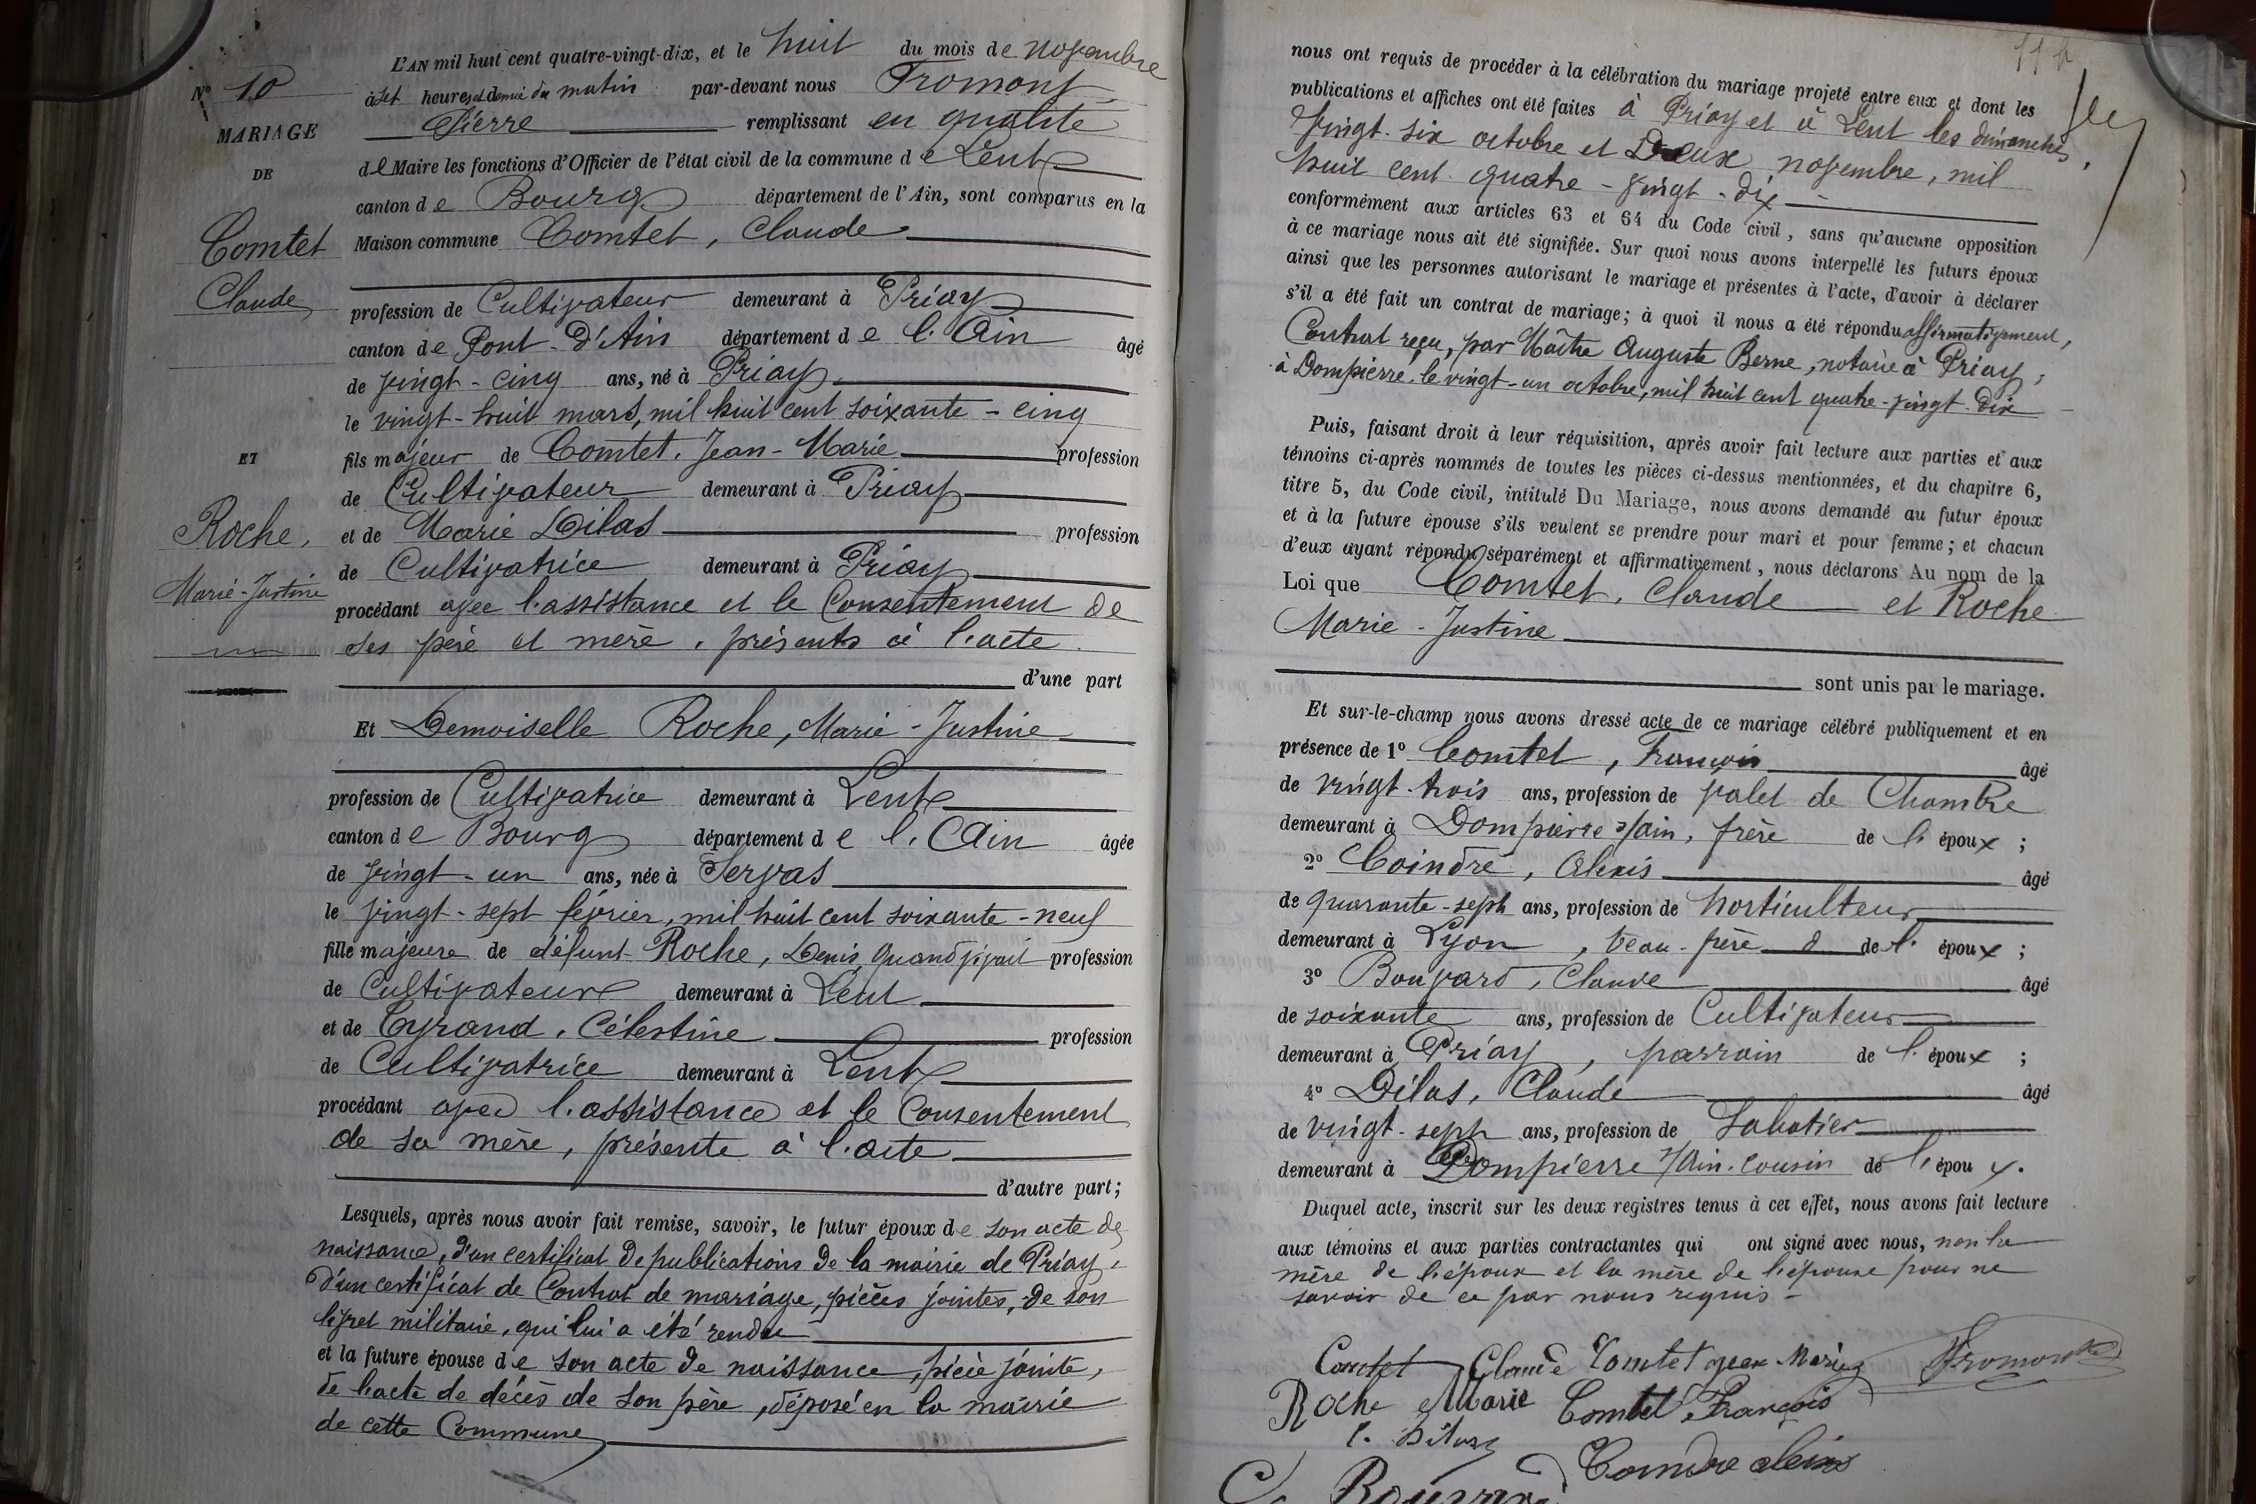 L'AN mil huit cent quatre-vingt-dix, et le huit du mois de novembre
à sept heures et demie du matin par-devant nous Fromont
Pierre remplissant en qualité
de Maire les fonctions d'Officier de l'état civil de la commune de Lent
canton de Bourg département de l'Ain, sont comparus en la
Maison commune Comtet, Claude
profession de Cultivateur demeurant à Priay
canton de Pont-d'Ain département de l'Ain âgé
de vingt-cinq ans, né à Priay
le vingt-huit mars, mil huit cent soixante-cinq
fils majeur de Comtet, Jean-Marie profession
de Cultivateur demeurant à Priay
et de Marie Dilas profession
de Cultivatrice demeurant à Priay
procédant avec l'assistance et le Consentement de
ses père et mère, présents à l'acte.
d'une part
Et Demoiselle Roche, Marie-Justine
profession de Cultivatrice demeurant à Lent
canton de Bourg département de l'Ain âgée
de vingt-un ans, née à Servas
le vingt-sept février, mil huit cent soixante-neuf
fille majeure de défunt Roche, Denis, quand vivait profession
de Cultivateur demeurant à Lent
et de Cyrand, Célestine profession
de Cultivatrice demeurant à Lent
procédant avec l'assistance et le Consentement
de sa mère, présente à l'acte
d'autre part;
Lesquels, après nous avoir fait remise, savoir, le futur époux de son acte de
naissance, d'un certificat de publications de la mairie de Priay,
d'un certificat de Contrat de mariage, pièces jointes, de son
livret militaire, qui lui a été rendu
et la future épouse de son acte de naissance, pièce jointe,
de l'acte de décès de son père, déposé en la mairie
de cette Commune
No 10
MARIAGE
DE
Comtet
Claude
ET
Roche,
Marie-Justine
nous ont requis de procéder à la célébration du mariage projeté entre eux et dont les
publications et affiches ont été faites à Priay et à Lent les dimanches,
vingt-six octobre et Deux novembre, mil
huit cent quatre-vingt-dix
conformément aux articles 63 et 64 du Code civil, sans qu'aucune opposition
à ce mariage nous ait été signifiée. Sur quoi nous avons interpellé les futurs époux
ainsi que les personnes autorisant le mariage et présentes à l'acte, d'avoir à déclarer
s'il a été fait un contrat de mariage; à quoi il nous a été répondu affirmativement,
Contrat reçu, par Maître Auguste Berne, notaire à Priay,
à Dompierre, le vingt-un octobre, mil huit cent quatre-vingt-dix
Puis, faisant droit à leur réquisition, après avoir fait lecture aux parties et aux
témoins ci-après nommés de toutes les pièces ci-dessus mentionnées, et du chapitre 6,
titre 5, du Code civil, intitulé Du Mariage, nous avons demandé au futur époux
et à la future épouse s'ils veulent se prendre pour mari et pour femme; et chacun
d'eux ayant répondu séparément et affirmativement, nous déclarons Au nom de la
Loi que Comtet, Claude et Roche
Marie-Justine
sont unis par le mariage.
Et sur-le-champ nous avons dressé acte de ce mariage célébré publiquement et en
présence de 1o Comtet, François âgé
de vingt-trois ans, profession de valet de Chambre
demeurant à Dompierre s/Ain, frère de l'époux;
2o Coindre, Alexis âgé
de quarante-sept ans, profession de horticulteur
demeurant à Lyon, beau-frère de l'époux;
3o Bouvard, Claude âgé
de soixante ans, profession de Cultivateur
demeurant à Priay, parrain de l'époux;
4o Dilas, Claude âgé
de vingt-sept ans, profession de Sabotier
demeurant à Dompierre s/Ain, cousin de l'époux.
Duquel acte, inscrit sur les deux registres tenus à cet effet, nous avons fait lecture
aux témoins et aux parties contractantes qui ont signé avec nous, non la
mère de l'époux et la mère de l'épouse pour ne
savoir de ce par nous requis
Comtet Claude Comtet jean Marie Fromont
Roche Marie Comtet, François
C. Dilas
Coindre alexis
Bouvard